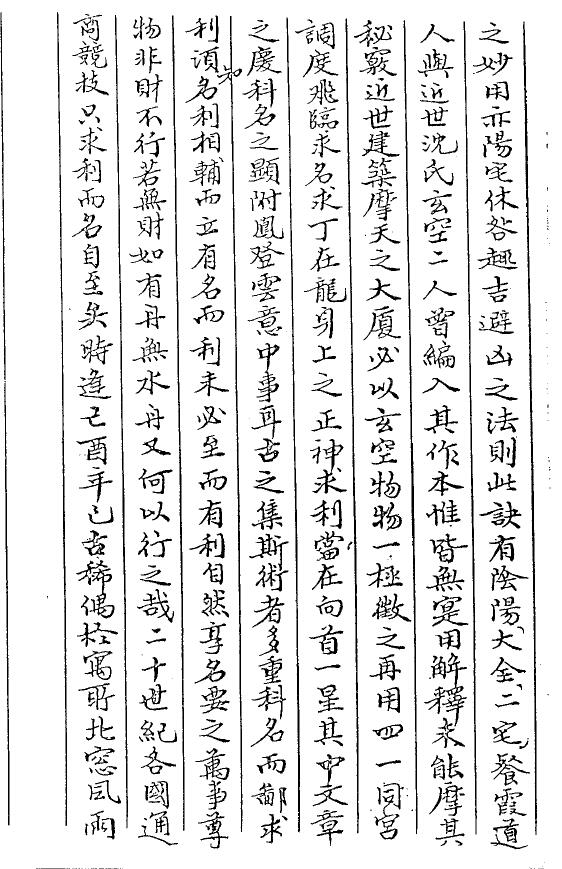 之妙用亦陽宅休咎趨吉避凶之法則此訣有陰陽大全二宅餐霞道
人與近世沈氏玄空二人曾編入其作本惟皆無寔用解釋未能摩其
秘竅近世建築摩天之大廈必以玄空物物一極徵之再用四一同宮
調度飛臨求名求丁在龍身上之正神求利當在向首一星其中文章
之慶科名之顯附鳳登雲意中事耳古之集斯術者多重科名而鄙求
利須知名利相輔而立有名而利未必至而有利自然享名要之萬事尊
物非財不行若無財如有舟無水舟又何以行之哉二十世紀各國通
商競技只求利而名自至矣時逢己酉年已古稀偶於寓所北窓風雨